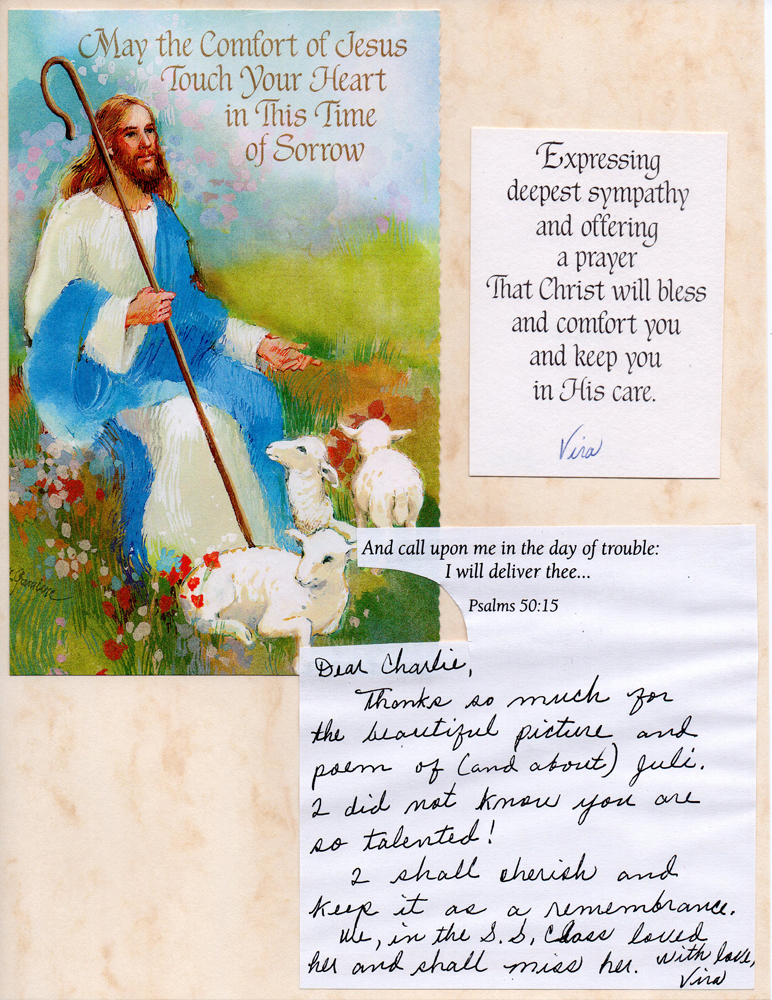 May the Comfort of Jesus
Touch Your Heart
in This Time
of Sorrow
Expressing
deepest sympathy
and offering
a prayer
That Christ will bless
and comfort you
and keep you
in His care.
Vira
And call upon me in the day of trouble:
I will deliver thee...
Psalms 50:15
Dear Charlie,
Thanks so much for
the beautiful picture and
poem of (and about) Juli.
I did not know you are
so talented!
I shall cherish and
keep it as a remembrance.
We, in the S.S. Class loved
her and shall miss her. With love,
Vira